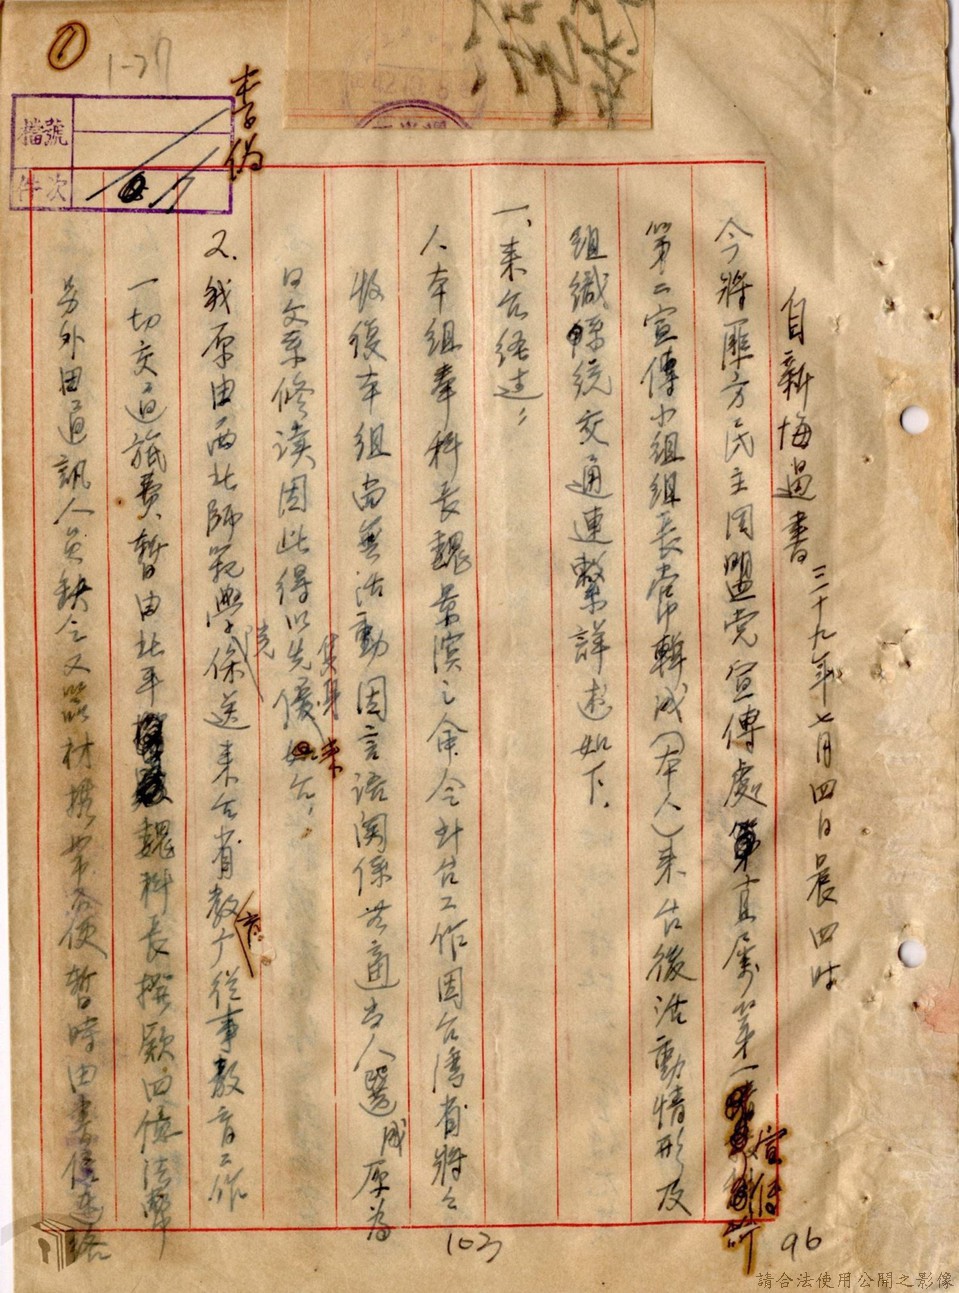 自新悔過書 三十九年七月四日晨四時
今將匪方民主同盟党宣傳處第直屬第一宣傳
第二宣傳小組組長常輯成(本人)来台後活動情形及
組織係統交通連繫詳述如下.
一、来台経过:
人本組奉科長魏景濱之命令赴台工作因台灣省將今
收復本組尚無活動因言語関係無適当人選成原為
日文系修读因此得以先優 来台,
2.我原由西北師範學院保送来台省教育廳從事教育工作
一切交通旅費暫由北平魏科長撥款四億法幣
另外因通訊人員缺乏又器材攜帶不便暫時由書信連络
檔號
件次
1-27
103
96
請合法使用公開之影像